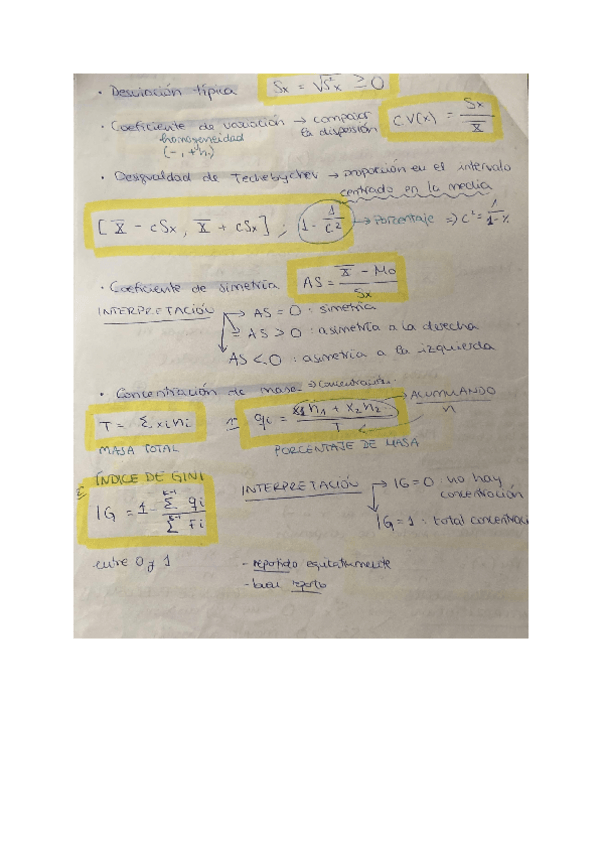 · Desviación típica Sx = √S²x ≥ 0
· Coeficiente de variación → comparar la dispersión CV(x) = Sx / x̄
homogeneidad
(-, + h.)
· Desigualdad de Tchebychev → proporción en el intervalo
centrado en la media
[x̄ - cSx, x̄ + cSx] ; 1 - 1/c² → Porcentaje => c² = 1/1-%
· Coeficiente de simetría AS = x̄ - Mo / Sx
INTERPRETACIÓN → AS = 0 : simetría
→ AS > 0 : asimetría a la derecha
AS < 0 : asimetría a la izquierda
· Concentración de masa
T = Σ xi ni qi = x1 n1 + x2 n2.. / T ACUMULANDO n
MASA TOTAL PORCENTAJE DE MASA
ÍNDICE DE GINI
INTERPRETACIÓN → IG = 0 no hay concentración
IG = 1 - Σ^k-1 qi / Σ^k-1 Fi
IG = 1 : total concentraci
entre 0 y 1 - repartido equitativamente
- buen reparto